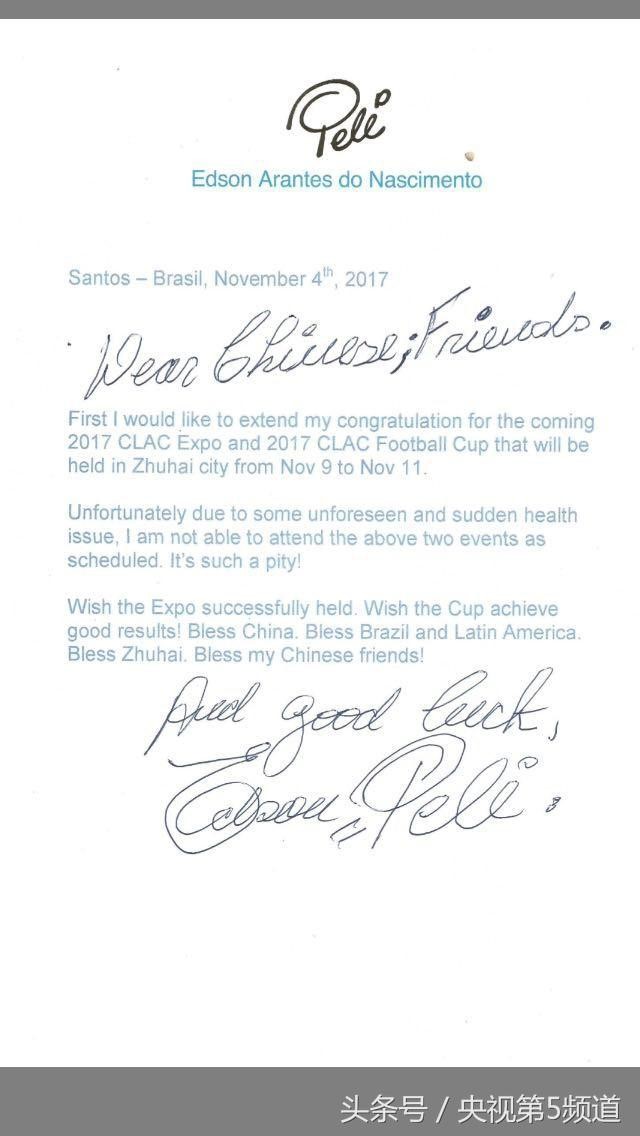 Pelé
Edson Arantes do Nascimento
Santos – Brasil, November 4th, 2017
Dear Chinese; Friends.
First I would like to extend my congratulation for the coming
2017 CLAC Expo and 2017 CLAC Football Cup that will be
held in Zhuhai city from Nov 9 to Nov 11.
Unfortunately due to some unforeseen and sudden health
issue, I am not able to attend the above two events as
scheduled. It's such a pity!
Wish the Expo successfully held. Wish the Cup achieve
good results! Bless China. Bless Brazil and Latin America.
Bless Zhuhai. Bless my Chinese friends!
And good luck,
Edson = Pelé.
头条号 / 央视第5频道